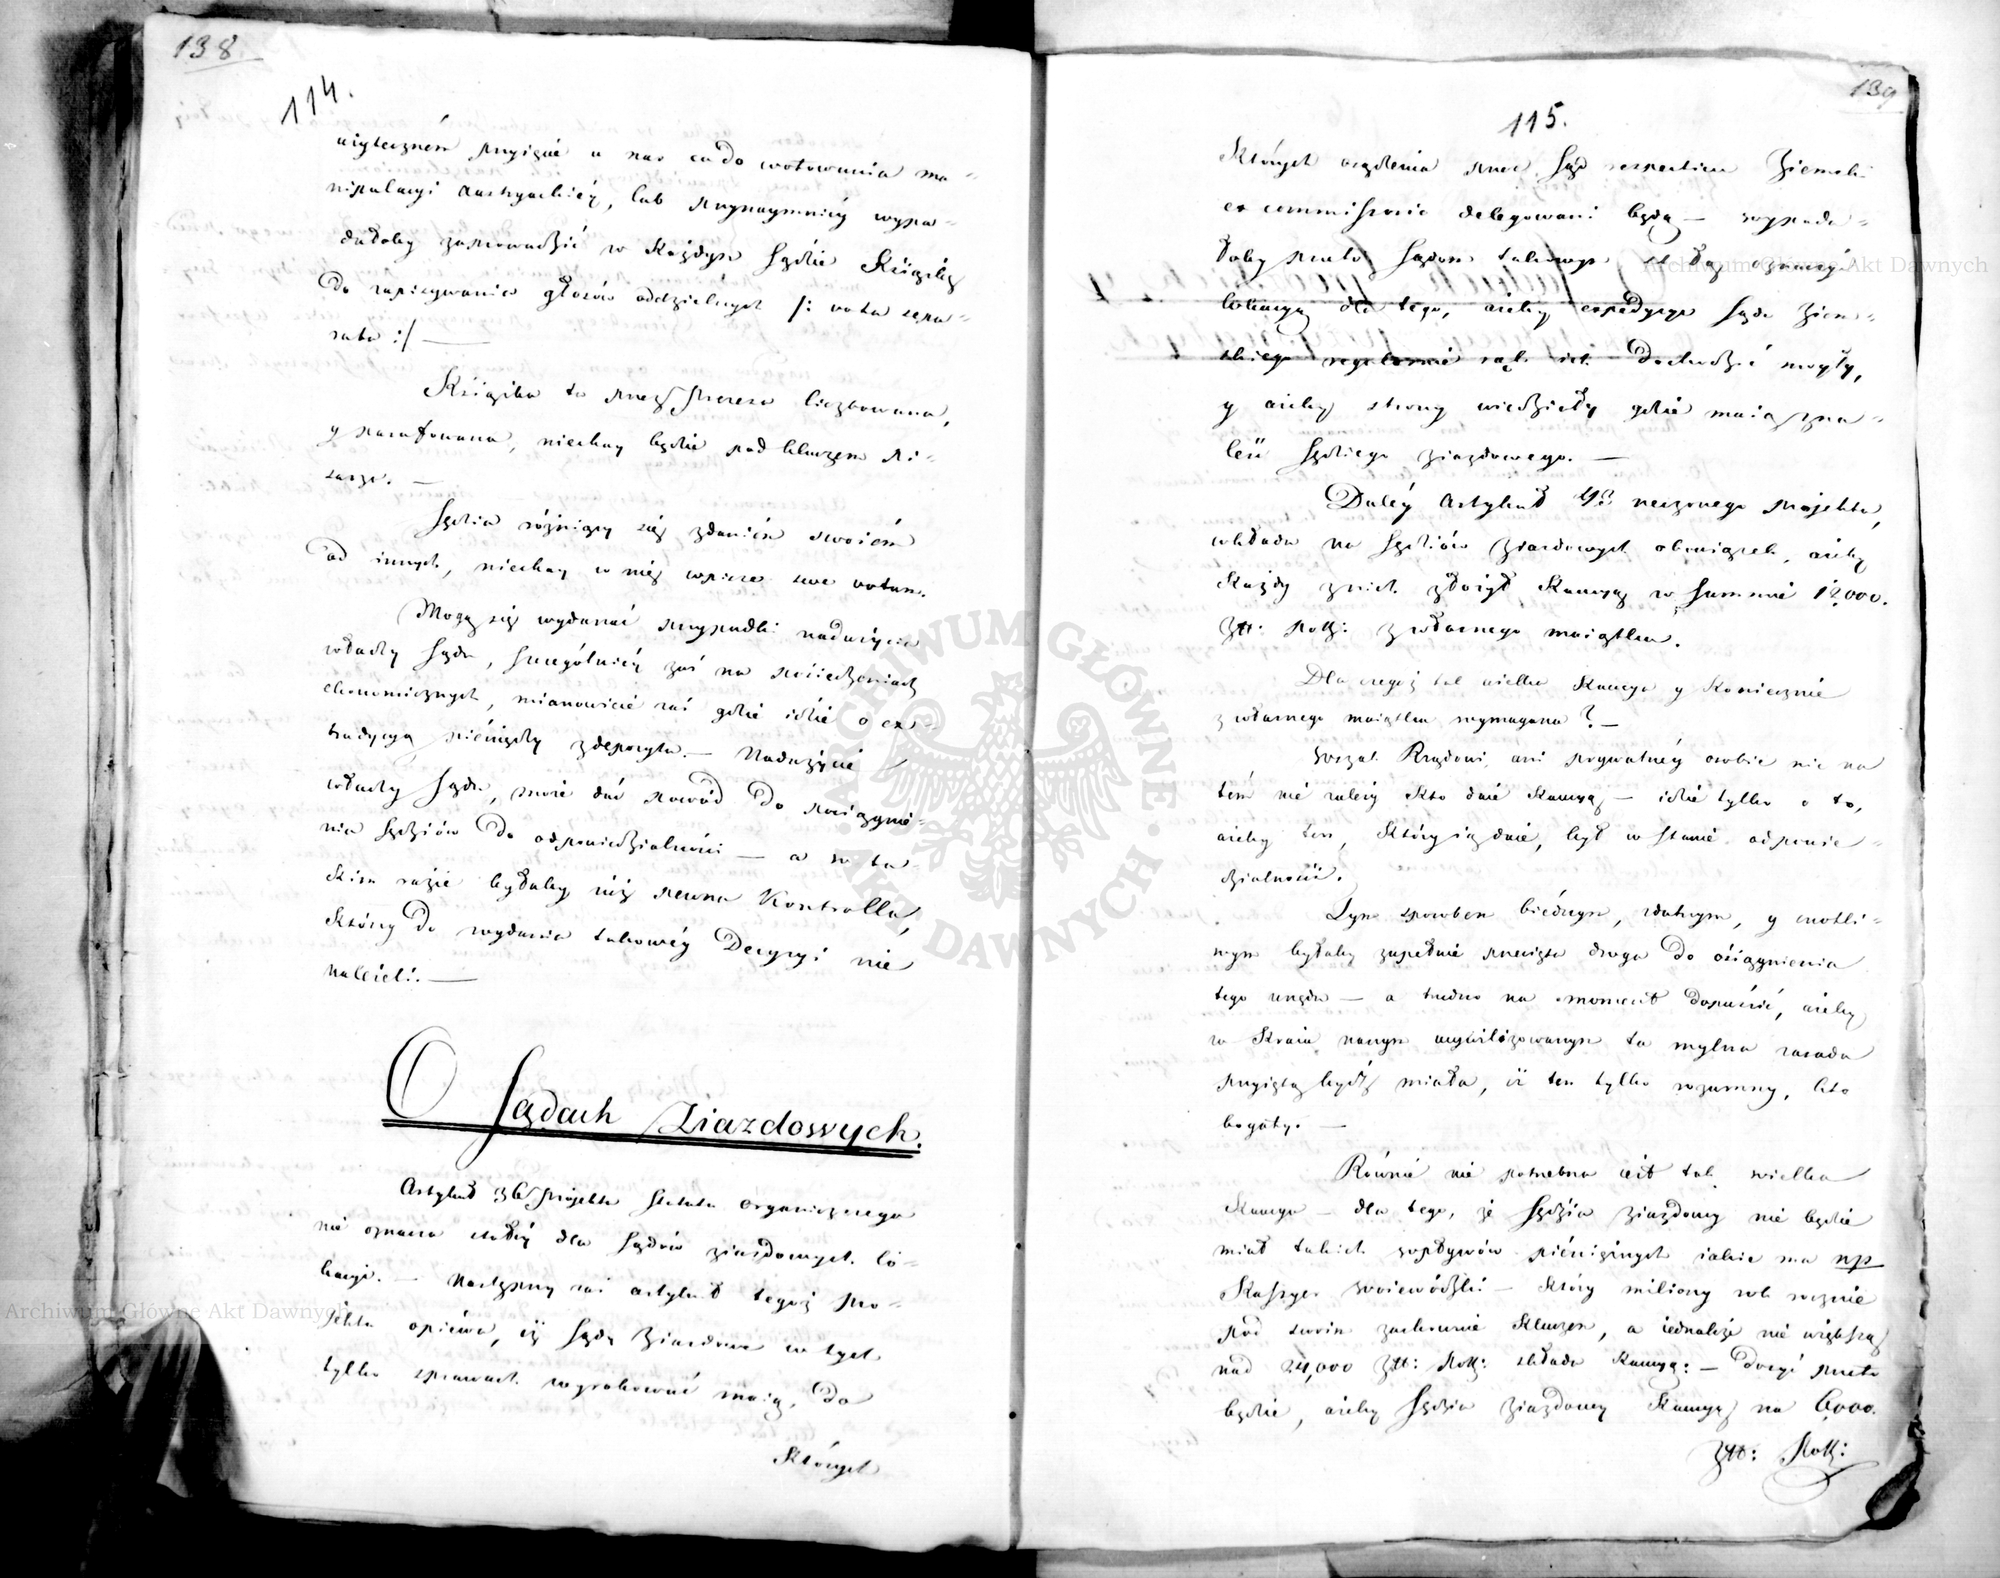 138
114.
użyteczném przyiąć u nas co do wotowania ma-
nipulacyi Austryackiéy, lub przynaymniéy wypa-
dałoby zaprowadzić w każdym Sądzie Księżkę
do zapisywania głosów oddzielnych /: vota sepa-
rata :/ —
Księżka ta przez Prezesa liczbowana,
y parafowana, niechay będzie pod kluczem Pi-
sarza. —
Sędzia różniący się zdaniém swoiém
od innych, niechay w nię wpisze swe votum.
Mogą się wydarzać przypadki nadużycia
władzy Sądu, szczególniéy zaś na posiedzeniach
ekonomicznych, mianowicie zaś gdzie idzie o ex-
tradycyą pieniędzy z depozytu. — Nadużycie
władzy Sądu, może dać powód do pociągnie-
nia Sędziów do odpowiedzialności — a w ta-
kim razie byłaby iuż pewna Kontrolla,
którzy do wydania takowéy Decyzyi nie
należeli. —
O Sądach Ziazdowych.
Artykuł 36 Projektu Statutu Organicznego
nie oznacza stałéy dla Sądów ziazdowych lo-
kacyi. — Następny zaś artykuł tegoż Pro-
jektu opiewa, iż Sądy Ziazdowe w tych
tylko sprawach wyrokować maią, do
Których
139
115.
Których osądzenia przez Sąd respective Ziemski
ex commissorio delegowani będą — wypada-
łoby przeto Sądom takowym stałą oznaczyć
lokacyą dla tego, ażeby expedycye Sądu Ziem-
skiego regularnie rąk ich dochodzić mogły,
y ażeby strony wiedziały gdzie maią zna-
leść Sędziego ziazdowego. —
Daléy Artykuł 42 rzeczonego Projektu,
wkłada na Sędziów Ziazdowych obowiązek, ażeby
każdy z nich złożył Kaucyą w Summie 12,000.
Złt: Polk: z własnego maiątku.
Dla czegoż tak wielka Kaucya y koniecznie
z własnego maiątku wymagana? —
Wszak Rządowi, ani prywatnéy osobie nic na
tém nie zależy kto daie Kaucyą — idzie tylko o to,
ażeby ten, który ią daie, był w stanie odpowie-
dzialności.
Tym sposobem biednym, zdatnym, y cnotli-
wym byłaby zupełnie przecięta droga do osiągnienia
tego urzędu — a trudno na moment dopuścić, ażeby
w Kraiu naszym ucywilizowanym ta mylna zasada
przyiętą bydź miała, iż ten tylko rozumny, kto
bogaty. —
Równie nie potrzebna iest tak wielka
Kaucya — dla tego, że Sędzia ziazdowy nie będzie
miał takich wpływów pieniężnych iakie ma np
Kassyer Woiewódzki — który miliony rok rocznie
pod swoim zachowuie kluczem, a iednakże nie większą
nad 24,000 Złt: Polk: składa Kaucyą: — dosyć przeto
będzie, ażeby Sędzia Ziazdowy Kaucyą na 6,000.
Złt: Polk:
Archiwum Główne Akt Dawnych
Archiwum Główne Akt Dawnych
ARCHIWUM GŁÓWNE · AKT DAWNYCH ·